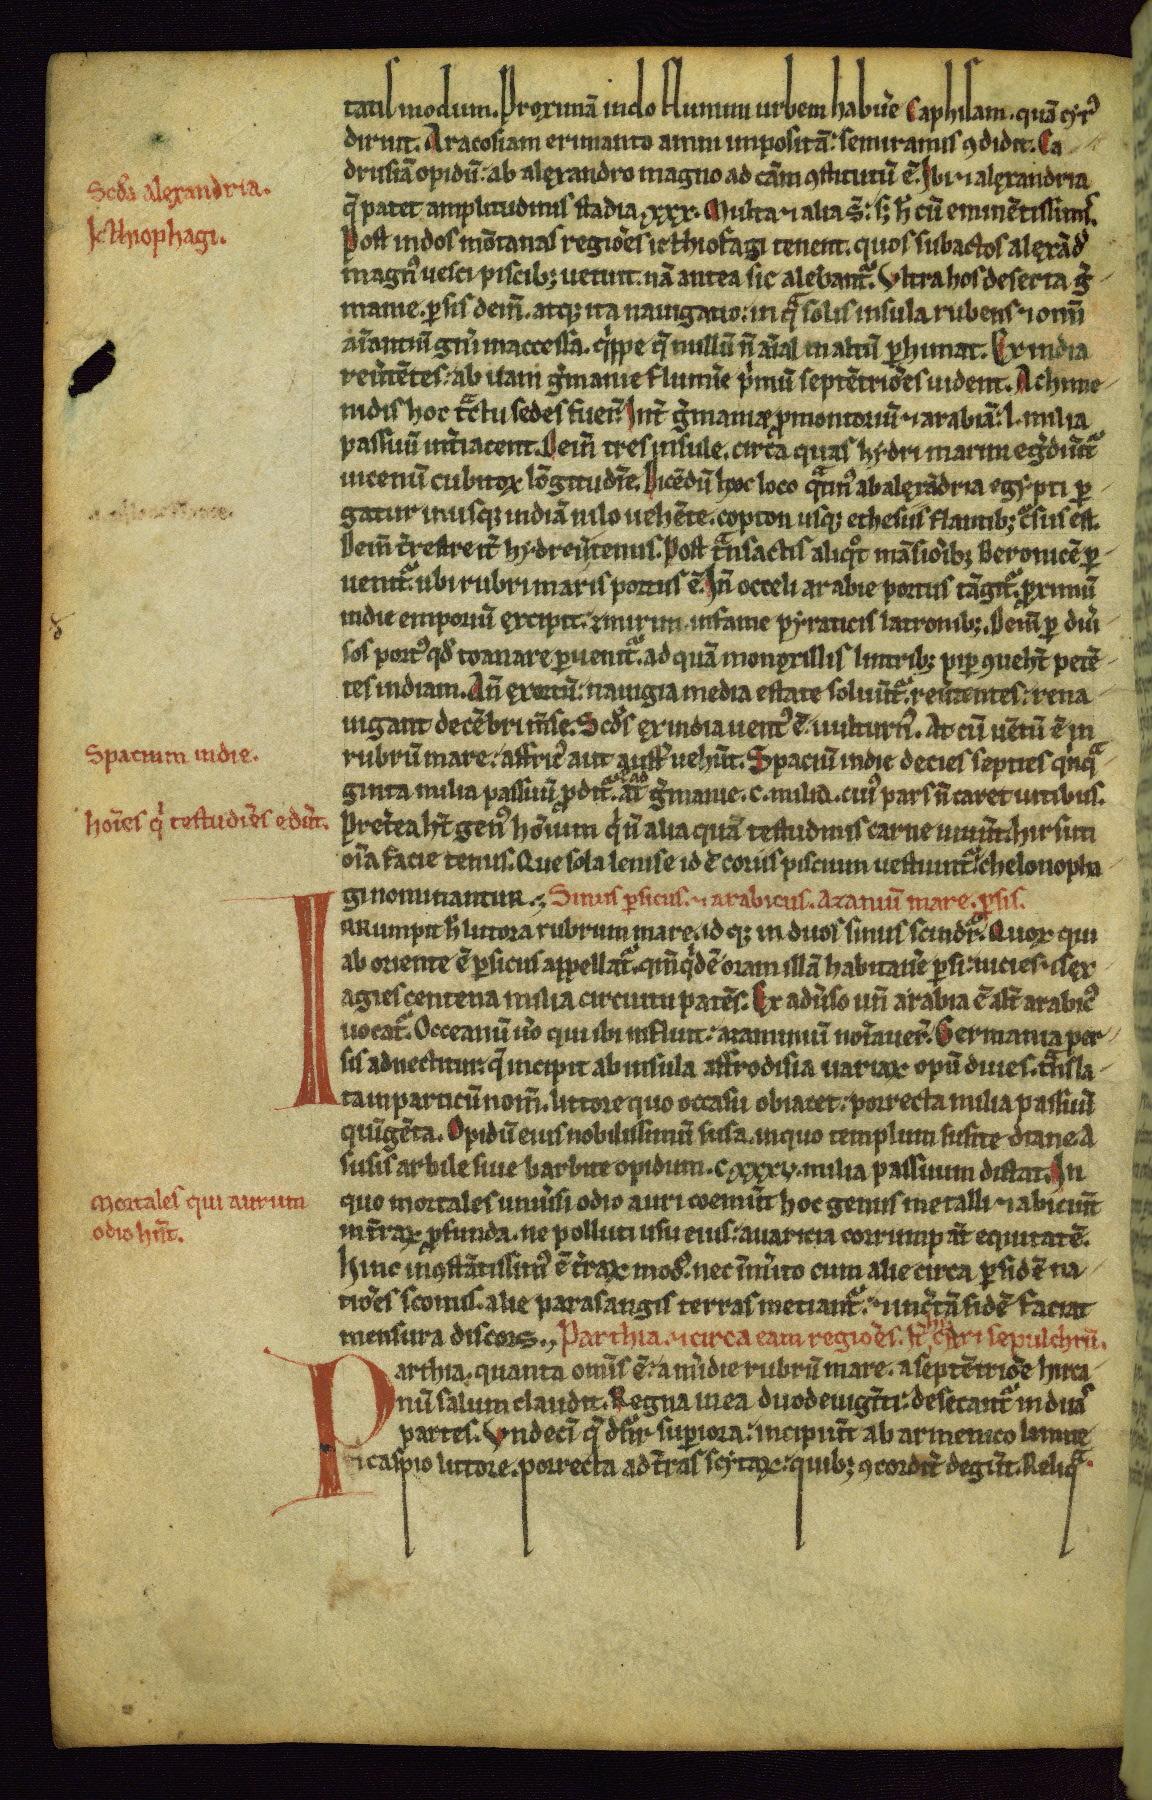 tatis modum. Proximā indo flumini urbem habuēre caphisam. quā cyrꝰ
diruit. Aracosiam erimanto amni impositā: semiramis ꝯdidit. Ca
drusiā opidū: ab alexandro magno ad
Ibi ⁊ alexandria
Scd̄a alexandria.
q̄ patet amplitudinis stadia xxx. Multa ⁊ alia s̄: sꝫ h̄ cū eminētissimis.
Icthiophagi.
Post indos mōtanas regiōes icthiofagi tenent. quos subactos alexād̄
magnꝰ uesci piscibꝫ uetuit. nā antea sic alebant᷑. Vltra hos deserta g̃
manie. ꝑsis dein̄. atqꝫ ita nauigatio: in qᷓ solis insula rubens ⁊ om̄i
aīantiū gn̄i inaccessa. qͥppe q̄ nullū n̄ aīal inlatū ꝑhimat. Ex india
reũtētes: ab
g̃manie flumīe pͥmū septētriōes uident. Achime
nidis hoc tᷓctu sedes fuer̄. Int̄ g̃maniæ ꝓmontoriū ⁊ arabiā: l. milia
passuū int̄iacent. Dein̄ tres insule. circa quas hydri marini eg̃diūt᷑
uicenū cubitoꝝ lōgitudīe. Dicēdū hoc loco qᷓtinꝰ ab alexādria egypti ꝑ
gatur inusqꝫ indiā nilo uehēte. copton usqꝫ ethesiis flantibꝫ cͥsus est.
Dein̄ t̄restre it̄ hydreũtenus. Post tᷓnsactis aliqͦt māsiōibꝫ Beronicē ꝑ
uenit᷑. ubi rubri maris portus ē. In̄ occeli arabie portus tāgit᷑. ꝓximū
indie emporiū excipit. zmirim. infame pyraticis latronibꝫ. Dein̄ ꝑ diũ
sos portꝰ qd̄
ꝑuenit᷑. ad quā monoxillis lintribꝫ pip̄ ꝯueht̄ petē
tes indiam. An̄ exortū: nauigia media estate soluūt᷑. reũtentes: rena
uigant decēbri m̄se. Scd̄s ex india uentꝰ ē uulturnꝰ. At cū uētū ē in
Spacium indie.
rubrū mare: affricꝰ aut austꝰ uehūt. Spaciū indie decies septies qͥnqᷓ
ginta milia passuū ꝓdit᷑.
g̃manie. c. milia. cuiꝰ pars n̄ caret uitibus.
hoīes qͥ testudīes edūt.
Pret̄ea ht̄ genꝰ hōium qͥ n̄ alia quā testudinis carne uiuūt. hirsuti
oīa facie tenus. Que sola leuis e id ē coriis piscium uestiunt᷑. chelonopha
gi nominantur. Sinus ꝑsicus. ⁊ arabicus. Azaniū mare. ꝑsis.
IRRumpit h̄ littora rubrum mare. idqꝫ in duos sinus scindit᷑. Quoꝝ qui
ab oriente ē ꝑsicus appellat᷑. qm̄ qͥdē oram illā habitauēꝑsi: uicies ⁊ sex
agies centena milia circuitu patēs. Ex adũso un̄ arabia ē alt̄ arabicꝰ
uocat᷑. Occeanū ũo qui ibi influit: azaninū noīauer̄. Germania per
sis adnectitur. q̄ incipit ab insula affrodisia uariaꝝ opū diues. tᷓnsla
tam particū nom̄. littore quo occasu obiacet: porrecta milia passuū
quīgēta. Opidū eius nobilissimū susa. inquo templum susite diane. A
susis arbile siue barbite opidum. cxxxv. milia passuum distat. In
Mortales qui aurum
odio hn̄t.
quo mortales uniũsi odio auri coemūt hoc genus metalli ⁊ abiciūt
int̄raꝝ ꝓfunda. ne polluti usu eius: auaricia corrumpāt equitatē.
Hinc inꝯstātissimꝰ ē t̄raꝝ modꝰ. nec īm̄ito cum alie circa ꝑsidē na
tiōes scenis. alie parasangis terras metiant᷑. ⁊ incertā fidē faciat
mensura discors. Parthia. ⁊ circa eam regiōes. ⁊ cyri sepulchrū.
Parthia. quanta omīs ē: a m̄idie rubrū mare. a septētriōe hirca
nū salum claudit. Regna in ea duodeuigīti: desecant᷑ in duas
partes. Vndeci q̄ dn̄r supiora: incipiūt ab armenico limite
⁊ caspio littore. porrecta ad t̄ras scytaꝝ: quibꝫ ꝯcordit̄ degūt. Reliqᷓ.